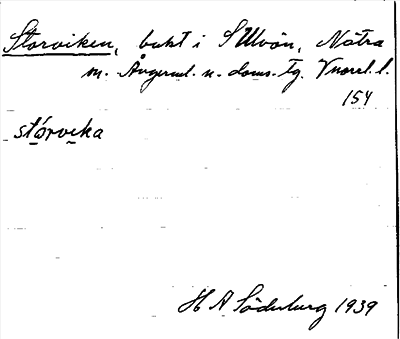 Storviken, bukt i S Ulvön, Nätra
sn. Ångerml. n. doms. tg. Vnorrl. l.
154
stórvika
H A Söderberg 1939